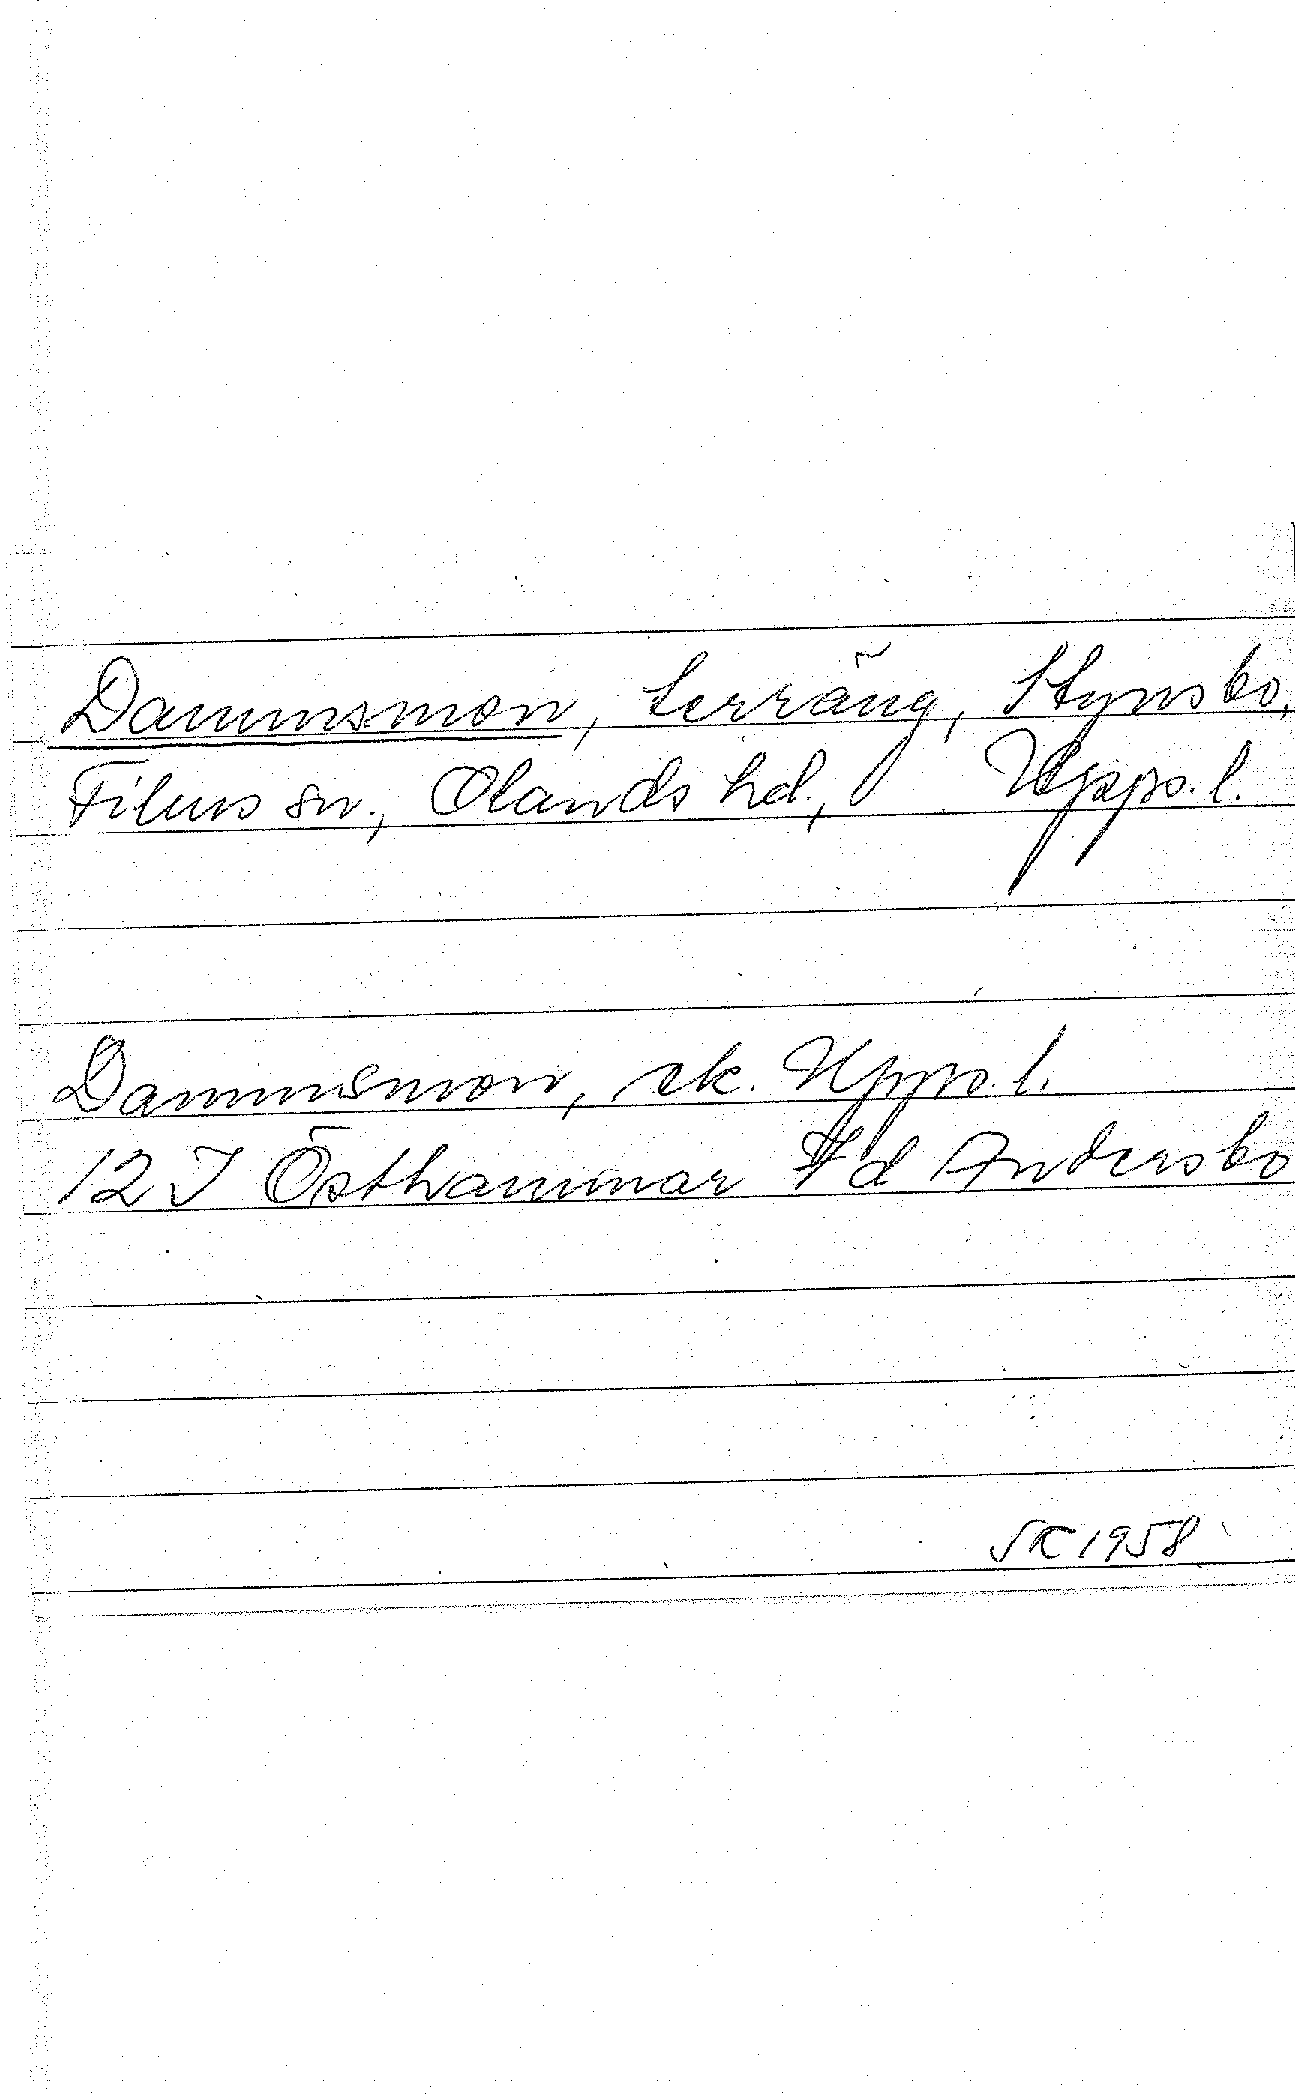 Dammsmon, terräng, Stynsbo,
Films sn., Olands hd., Upps. l.
Dammsmon, ek. Upps. l.
12 I Östhammar 7d Andersbo
SK 1958